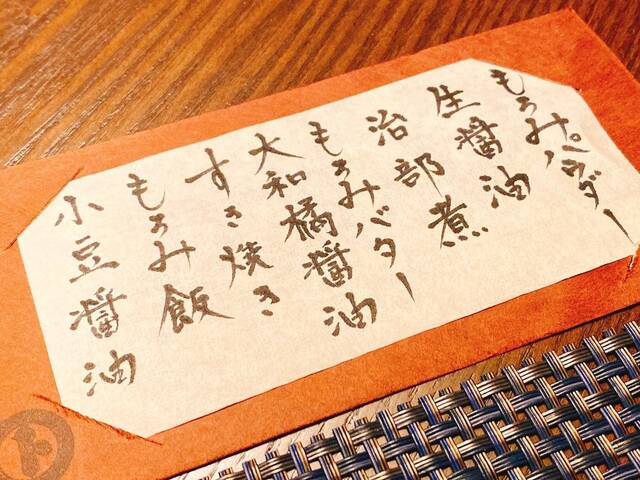 もろみパウダー
生醤油
治部煮
もろみバター
大和橘醤油
すき焼き
もろみ飯
小豆醤油